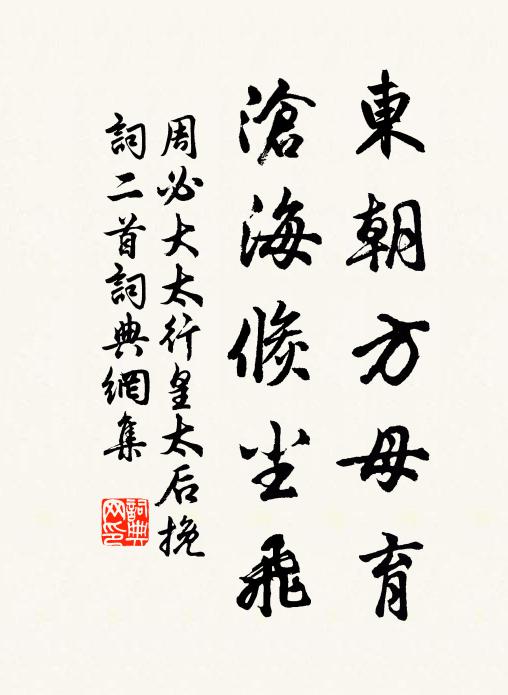 東朝方母育
滄海倏尘飛
周必大太行皇太后挽
詞二首詞典網集
詞典網印